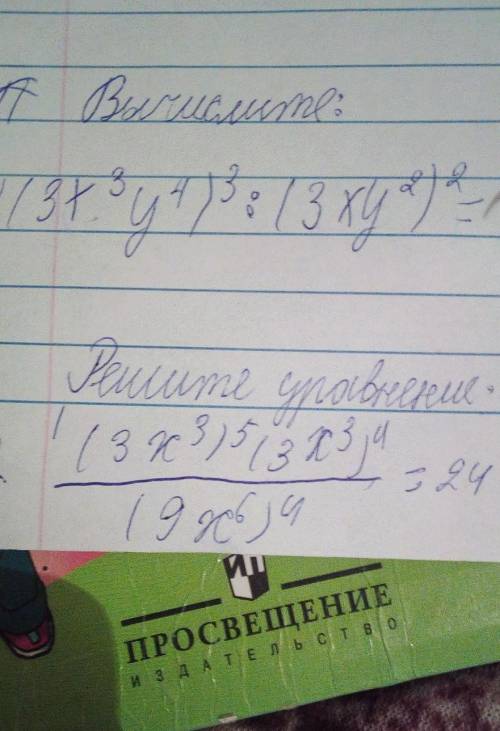 Вычислите:
(3x³y⁴)³ : (3xy²)² =
Решите уравнение.
(3x³)⁵(3x³)⁴
(9x⁶)⁴
= 24
ПРОСВЕЩЕНИЕ
ИЗДАТЕЛЬСТВО